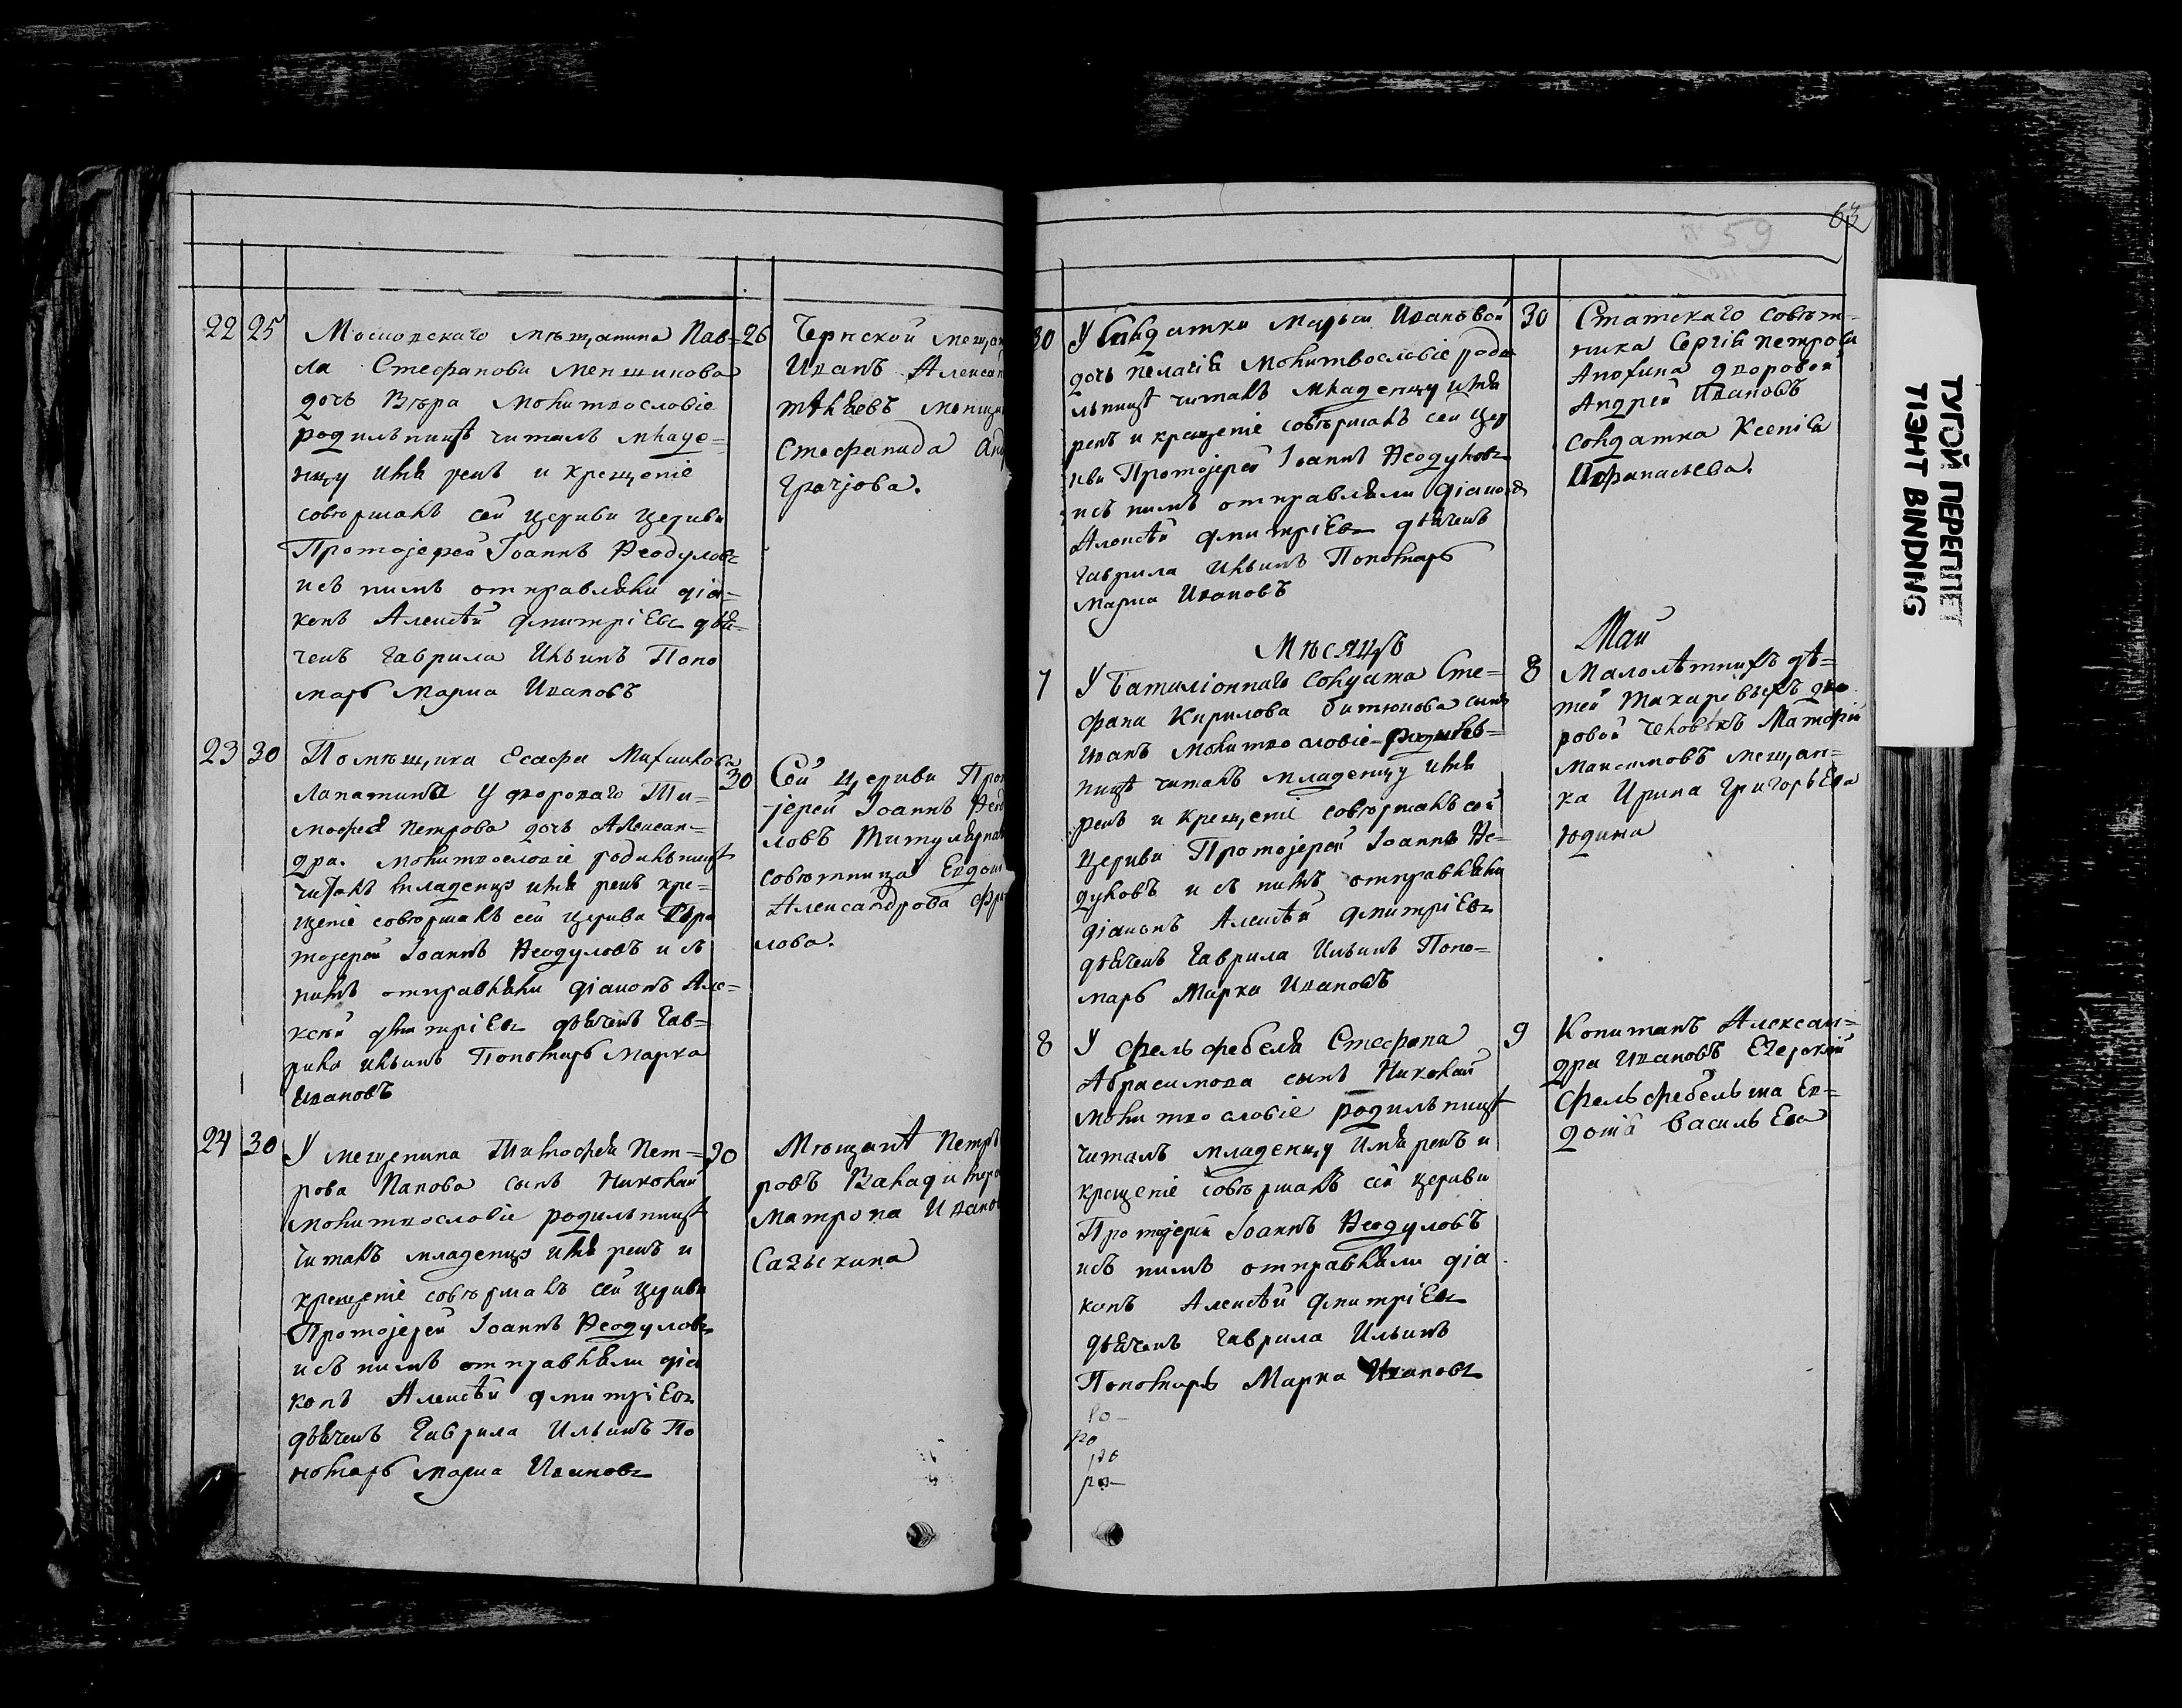 22 25 Московскаго мѣщанина Пав=
ла Стефанова Менщикова
дочь Вѣра молитвословіе
родильницѣ читалъ младе=
нцу имя рекъ и крещеніе
совершалъ сей церкви церкви
Протоіерей Іоаннъ Неодуловъ
исъ нимъ отправляли діа=
конъ Алексѣй Дмитріевъ дья=
чекъ Гаврила Ильинъ Поно
марь Марка Ивановъ
26 Чернской мещан
Иванъ Алексан
Стефанида Анд
Грачјова.
23 30 Помѣщика Есафа Михаилова
Лапатина У двороваго Ти=
мофея Петрова дочь Алексан=
дра. молитвословіе родильницѣ
читалъ младенцу имя рекъ кре=
щеніе совершалъ сей церкви Про
тоіерей Іоаннъ Неодуловъ и съ
нимъ отправляли діаконъ Але=
ксѣй Дмитріевъ дьячекъ Гав=
рила Ильинъ Пономарь Марка
Ивановъ
30 Сей церкви Про
јерей Іоаннъ Нео
ловъ Титулярна
совѣтница Евдок
Александрова Фр
лова.
24 30 У мещенина Тимофея Пет=
рова Папова сынъ Николай
молитвословіе родильницѣ
читалъ младенцу имя рекъ и
крещеніе совершалъ сей церкви
Протоіерей Іоаннъ Неодуловъ
исъ нимъ отправляли діа
конъ Алексѣй Дмитріевъ
дьячекъ Гаврила Ильинъ По
номарь Марка Ивановъ
30 Мѣщанѣ Петръ
ровъ
Матрона Иванов
Сазыкина
63
59
30 У Салдатки Марьи Ивановой
дочь Пелагія Молитвословіе роди
льницѣ читалъ младенцу имя
рекъ и крещеніе совершалъ сей цер
кви Протоіерей Іоаннъ Неодуловъ
исъ нимъ отправляли діаконъ
Алексѣй Дмитріевъ дьячекъ
Гаврила Ильинъ Пономарь
Марка Ивановъ
30 Статскаго совѣт=
ника Сергія Петрова
Апохина дворовой
Андрей Ивановъ
солдатка Ксенія
Афанасьева.
Мѣсяцъ Маи
7 У Баталіоннаго Солдата Сте=
фана Кирилова Битюкова сынъ
Иванъ молитвословіе родиль=
ницѣ читалъ младенцу имя
рекъ и крещеніе совершалъ сей
церкви Протоіерей Іоаннъ Не=
дуловъ и съ нимъ отправляли
діаконъ Алексѣй Дмитріевъ
дьячекъ Гаврила Ильинъ Поно=
марь Марка Ивановъ
8 Малолѣтнихъ дѣ=
тей Макаревыхъ дво
ровой человѣкъ Матфей
Максимовъ мещан=
ка Ирина Григорьева
Юдина
8 У фельфебеля Стефана
Абрасимова сынъ Николай
молитвословіе родильницѣ
читалъ младенцу имя рекъ и
крещеніе совершалъ сей церкви
Протоіерей Іоаннъ Неодуловъ
исъ нимъ отправляли діа
конъ Алексѣй Дмитріевъ
дьячекъ Гаврила Ильинъ
Пономарь Марка Ивановъ
9 Копитанъ Алексан=
дра Ивановъ Егерской
фельфебельша Ев=
дотя Васильева
ро
ро
ро
ТУГОЙ ПЕРЕПЛЕТ
TIGHT BINDING